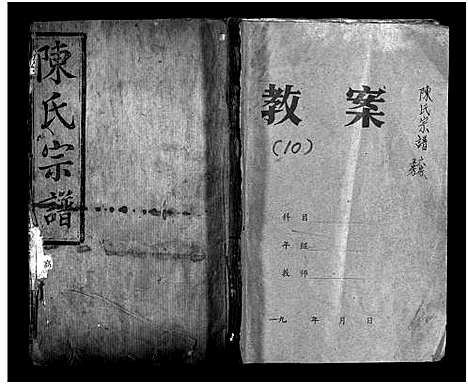 陳氏宗譜
教 案
(10)
陳氏宗譜
科目
年級
教師
一九 年 月 日